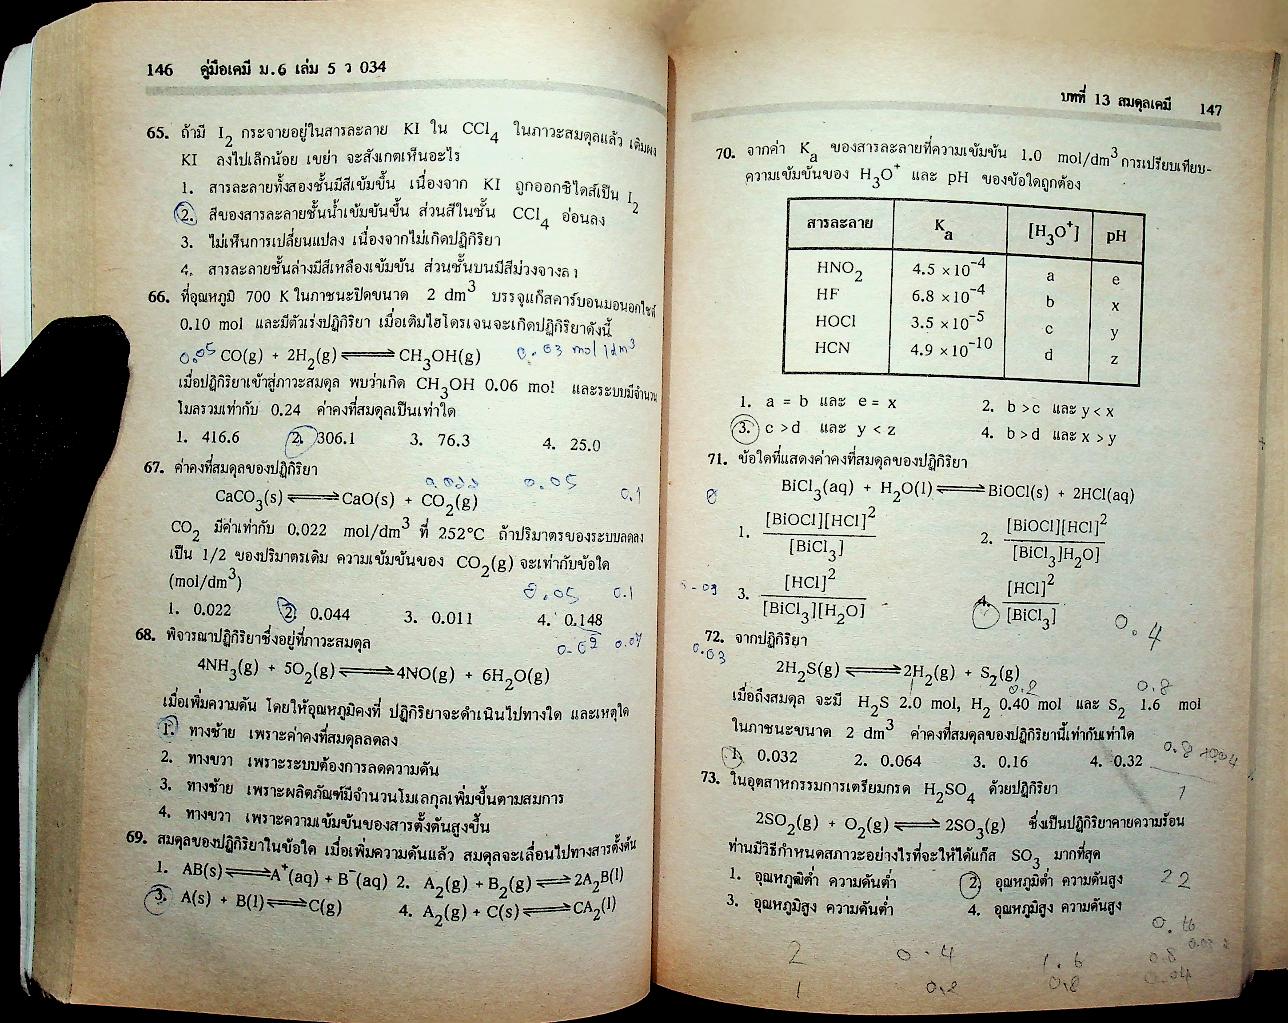 146 คู่มือเคมี ม.6 เล่ม 5 ว 034
65. ถ้ามี I2 กระจายอยู่ในสารละลาย KI ใน CCl4 ในภาวะสมดุลแล้ว เติมผง
KI ลงไปเล็กน้อย เขย่า จะสังเกตเห็นอะไร
1. สารละลายทั้งสองชั้นมีสีเข้มขึ้น เนื่องจาก KI ถูกออกซิไดส์เป็น I2
2. สีของสารละลายชั้นน้ำเข้มข้นขึ้น ส่วนสีในชั้น CCl4 อ่อนลง
3. ไม่เห็นการเปลี่ยนแปลง เนื่องจากไม่เกิดปฏิกิริยา
4. สารละลายชั้นล่างมีสีเหลืองเข้มข้น ส่วนชั้นบนมีสีม่วงจางลง
66. ที่อุณหภูมิ 700 K ในภาชนะปิดขนาด 2 dm³ บรรจุแก๊สคาร์บอนมอนอกไซด์
0.10 mol และมีตัวเร่งปฏิกิริยา เมื่อเติมไฮโดรเจนจะเกิดปฏิกิริยาดังนี้
0.05 CO(g) + 2H2(g) ⇌ CH3OH(g) 0.03 mol/dm³
เมื่อปฏิกิริยาเข้าสู่ภาวะสมดุล พบว่าเกิด CH3OH 0.06 mol และระบบมีจำนวน
โมลรวมเท่ากับ 0.24 ค่าคงที่สมดุลเป็นเท่าใด
1. 416.6 2. 306.1 3. 76.3 4. 25.0
67. ค่าคงที่สมดุลของปฏิกิริยา
0.022 0.05
CaCO3(s) ⇌ CaO(s) + CO2(g) 0.1
CO2 มีค่าเท่ากับ 0.022 mol/dm³ ที่ 252°C ถ้าปริมาตรของระบบลดลง
เป็น 1/2 ของปริมาตรเดิม ความเข้มข้นของ CO2(g) จะเท่ากับข้อใด
(mol/dm³) 0.05 0.1
1. 0.022 2. 0.044 3. 0.011 4. 0.148
68. พิจารณาปฏิกิริยาซึ่งอยู่ที่ภาวะสมดุล
4NH3(g) + 5O2(g) ⇌ 4NO(g) + 6H2O(g)
เมื่อเพิ่มความดัน โดยให้อุณหภูมิคงที่ ปฏิกิริยาจะดำเนินไปทางใด และเหตุใด
1. ทางซ้าย เพราะค่าคงที่สมดุลลดลง
2. ทางขวา เพราะระบบต้องการลดความดัน
3. ทางซ้าย เพราะผลิตภัณฑ์มีจำนวนโมเลกุลเพิ่มขึ้นตามสมการ
4. ทางขวา เพราะความเข้มข้นของสารตั้งต้นสูงขึ้น
69. สมดุลของปฏิกิริยาในข้อใด เมื่อเพิ่มความดันแล้ว สมดุลจะเลื่อนไปทางสารตั้งต้น
1. AB(s) ⇌ A⁺(aq) + B⁻(aq) 2. A2(g) + B2(g) ⇌ 2A2B(l)
3. A(s) + B(l) ⇌ C(g) 4. A2(g) + C(s) ⇌ CA2(l)
บทที่ 13 สมดุลเคมี 147
70. จากค่า Ka ของสารละลายที่ความเข้มข้น 1.0 mol/dm³ การเปรียบเทียบ-
ความเข้มข้นของ H3O⁺ และ pH ของข้อใดถูกต้อง
สารละลาย Ka [H3O⁺] pH
HNO2 4.5 ×10⁻⁴ a e
HF 6.8 ×10⁻⁴ b x
HOCl 3.5 ×10⁻⁵ c y
HCN 4.9 ×10⁻¹⁰ d z
1. a = b และ e = x 2. b >c และ y < x
3. c >d และ y < z 4. b >d และ x > y
71. ข้อใดที่แสดงค่าคงที่สมดุลของปฏิกิริยา
BiCl3(aq) + H2O(l) ⇌ BiOCl(s) + 2HCl(aq)
1. [BiOCl][HCl]² / [BiCl3] 2. [BiOCl][HCl]² / [BiCl3]H2O]
3. [HCl]² / [BiCl3][H2O] 4. [HCl]² / [BiCl3]
0.4
72. จากปฏิกิริยา
0.03
2H2S(g) ⇌ 2H2(g) + S2(g)
1 0.2 0.8
เมื่อถึงสมดุล จะมี H2S 2.0 mol, H2 0.40 mol และ S2 1.6 mol
ในภาชนะขนาด 2 dm³ ค่าคงที่สมดุลของปฏิกิริยานี้เท่ากับเท่าใด
1. 0.032 2. 0.064 3. 0.16 4. 0.32
0.8 ×0.04
1
73. ในอุตสาหกรรมการเตรียมกรด H2SO4 ด้วยปฏิกิริยา
2SO2(g) + O2(g) ⇌ 2SO3(g) ซึ่งเป็นปฏิกิริยาคายความร้อน
ท่านมีวิธีกำหนดสภาวะอย่างไรที่จะให้ได้แก๊ส SO3 มากที่สุด
1. อุณหภูมิต่ำ ความดันต่ำ 2. อุณหภูมิต่ำ ความดันสูง 22
3. อุณหภูมิสูง ความดันต่ำ 4. อุณหภูมิสูง ความดันสูง
2 0.4 1.6 0.8
1 0.2 0.8 0.04